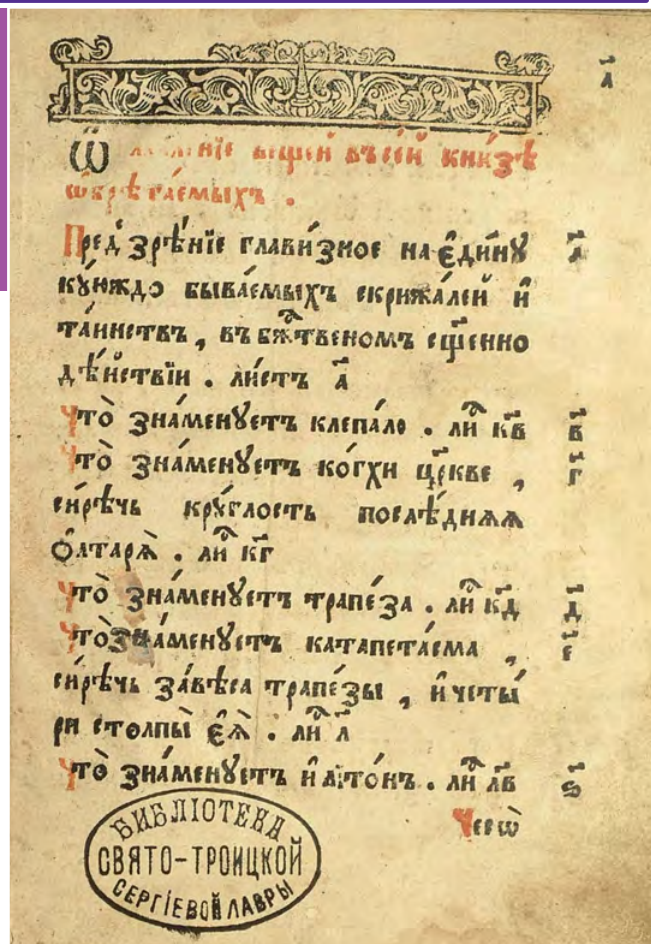 а҃
вещей въ сей кни́зѣ
ѡ҆брѣта́емыхъ .
Пред̾зрѣ́нїе глави́зное на є҆ди́нꙋ а҃
кꙋ́юждо быва́емыхъ скрижа́лей и҆
та́инствъ , въ бж҃твеномъ сщ҃енно
дѣ́йствїи . ли́стъ а҃
Что̀ зна́менꙋетъ клепа́ло . ли́ст к҃в в҃
Что̀ зна́менꙋетъ ко́гхи цр҃кве , г҃
си́рѣчь крꙋ́глость послѣ́дняя
ѻ҆лтаря̀ . ли́ст к҃г
Что̀ зна́менꙋетъ трапе́за . ли́ст к҃д д҃
Что̀ зна́менꙋетъ катапета́сма , є҃
си́рѣчь за́вѣса трапе́зы , и҆ четы́
ри столпы̀ є҆я̀ . ли́ст л҃
Что̀ зна́менꙋетъ и҆лито́нъ . ли́ст л҃в ѕ҃
Чесѡ
БИБЛІОТЕКА
СВЯТО-ТРОИЦКОЙ
СЕРГІЕВОЙ ЛАВРЫ